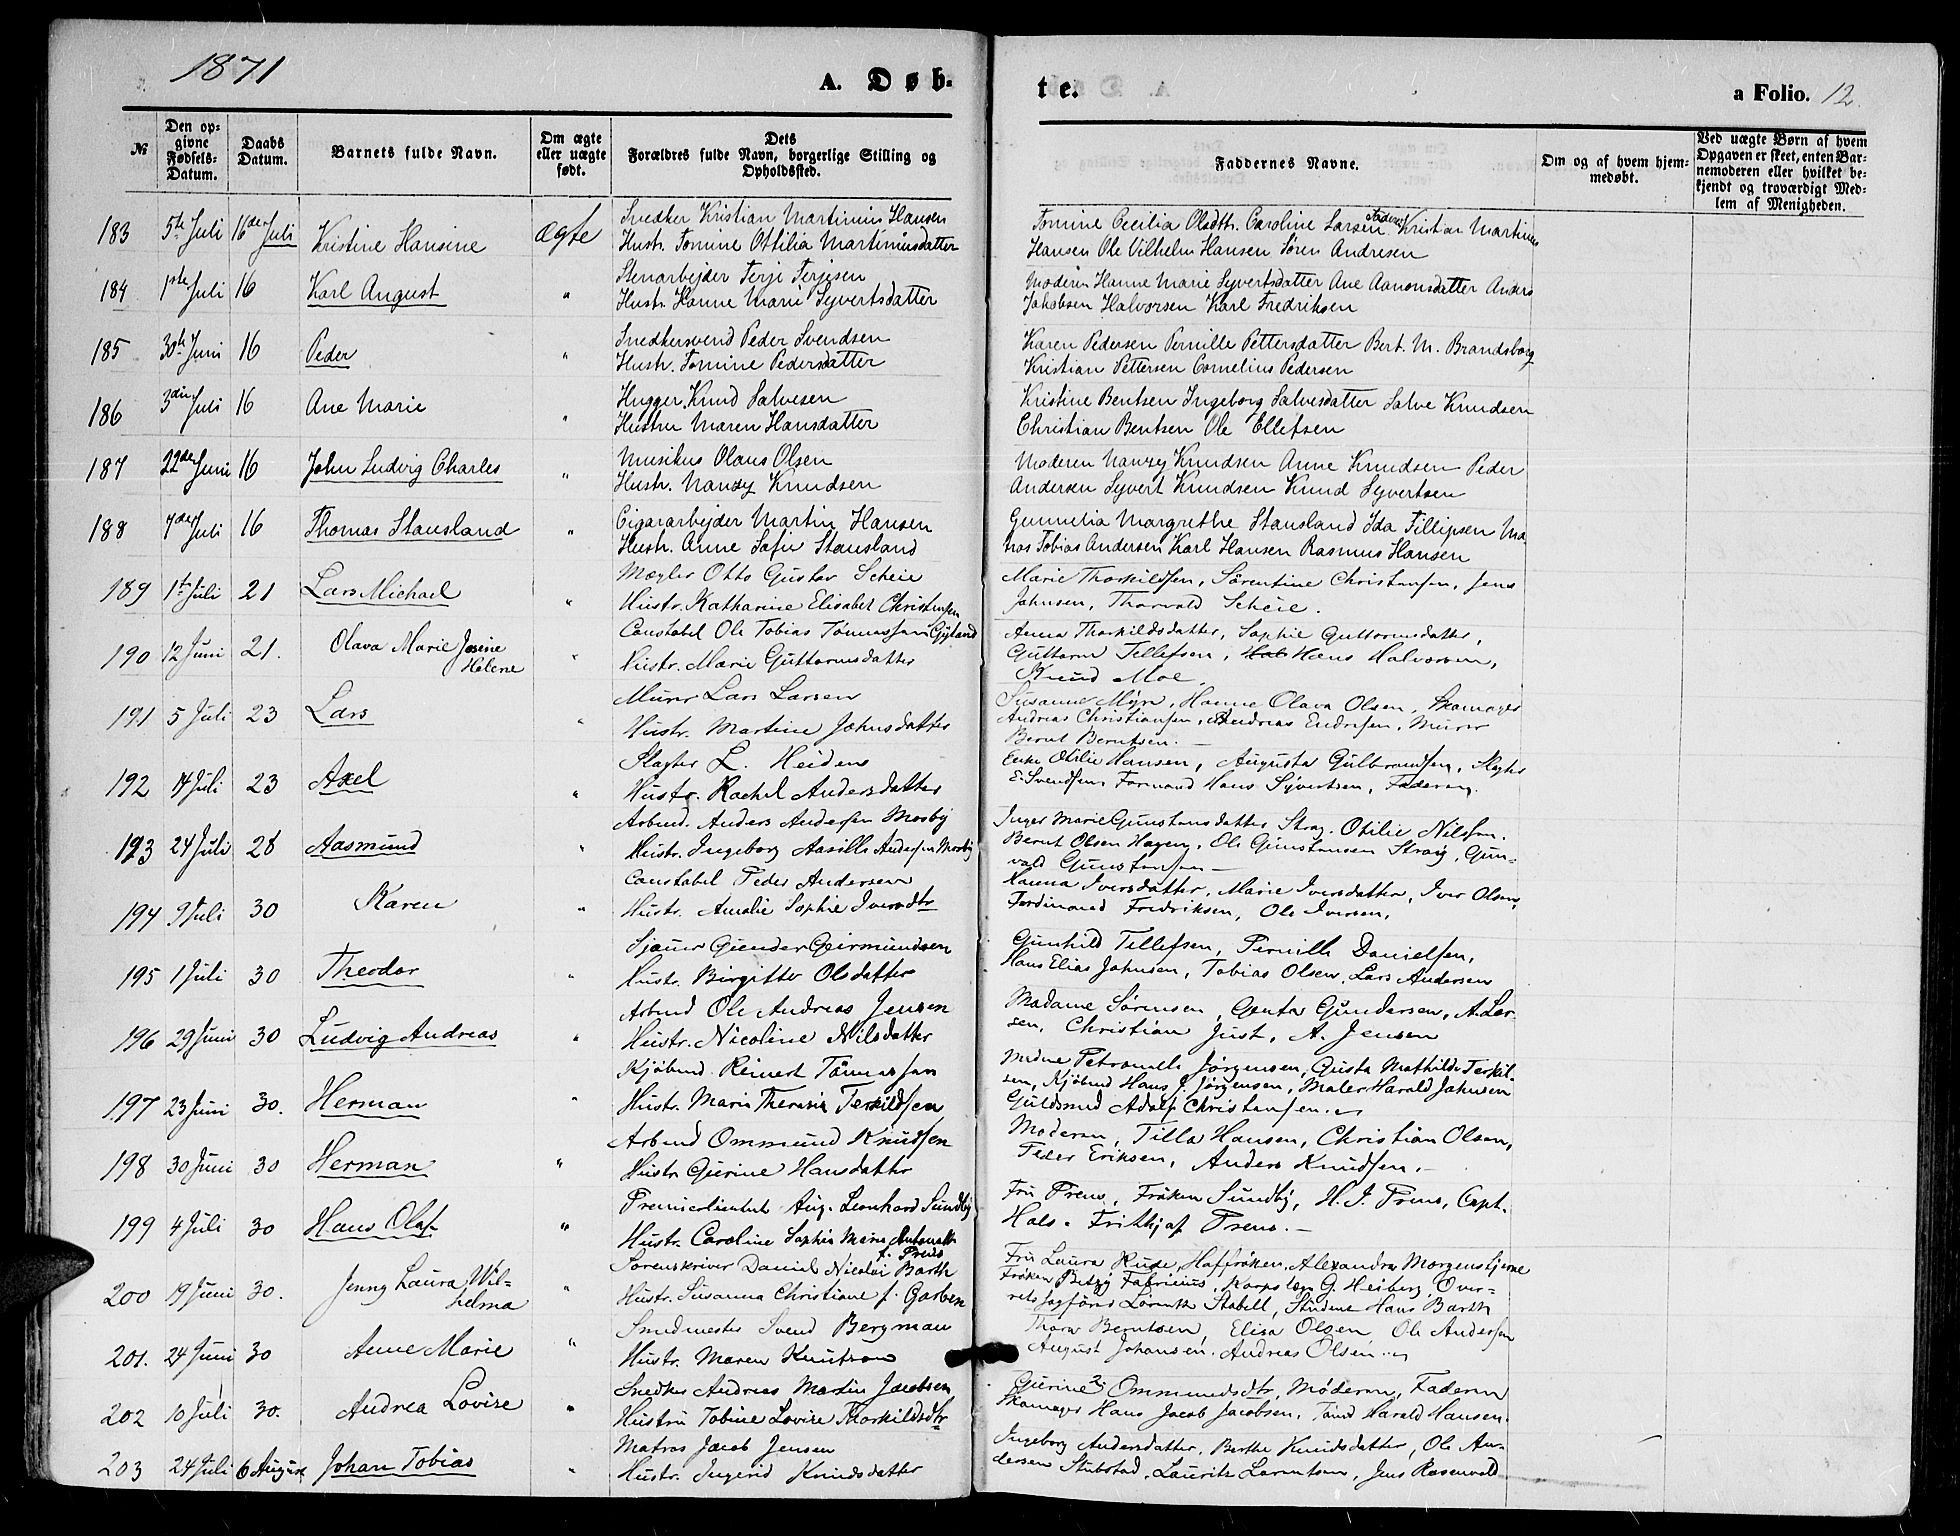 1871
A. Døb-
te.
a Folio. 12.
№
Den op-
givne
Fødsels-
Datum.
Daabs
Datum.
Barnets fulde Navn.
Om ægte
eller uægte
født.
Dets
Forældres fulde Navn, borgerlige Stilling og
Opholdssted.
Faddernes Navne.
Om og af hvem hjem-
medøbt.
Ved uægte Børn af hvem
Opgaven er skeet, enten Bar-
nemoderen eller hvilket be-
kjendt og troværdigt Med-
lem af Menigheden.
183 5te Juli 16de Juli Kristine Hansine ægte
Snedker Kristian Martinius Hansen
Hustr. Tomine Ottilia Martiniusdatter
Tomine Cecilia Olsdtr. Caroline Larsen Faderen Kristian Martinus
Hansen Ole Vilhelm Hansen Søren Andresen
184 1ste Juli 16 Karl August "
Stenarbejder Terje Terjesen
Hustr. Hanne Marie Syvertsdatter
Moderen Hanne Marie Syvertsdatter Ane Aanonsdatter Anders
Jakobsen Halvorsen Karl Fredriksen
185 30te Juni 16 Peder "
Snedkersvend Peder Svendsen
Hustr. Tomine Pedersdatter
Karen Pedersen Pernille Pettersdatter Bert. M. Brandsborg
Kristian Pettersen Cornelius Pedersen
186 3die Juli 16 Ane Marie "
Hugger Knud Salvesen
Hustru Maren Hansdatter
Kristine Bentsen Ingeborg Salvesdatter Salve Knudsen
Christian Bentsen Ole Ellefsen
187 22de Juni 16 John Ludvig Charles "
Musikus Olaus Olsen
Hustr. Nanzy Knudsen
Moderen Nanzy Knudsen Anne Knudsen Peder
Andersen Syvert Knudsen Knud Syvertsen
188 7de Juli 16 Thomas Stausland "
Cigararbejder Martin Hansen
Hustr. Anne Sofie Stausland
Gunnelia Margrethe Stausland Ida Fillipsen Ma
nas Tobias Andersen Karl Hansen Rasmus Hansen
189 1ste Juli 21 Lars Michael "
Mægler Otto Gustav Scheie
Hustr. Katharine Elisabet Christensen
Marie Thorkildsen, Sørentine Christensen, Jens
Johnsen, Thorvald Scheie.
190 12 Juni 21. Olava Marie Josine
Helene "
Constabel Ole Tobias Tønnessen Gyland
Hustr. Marie Guttormsdatter
Anna Thorkildsdatter, Sophie Guttormsdatter,
Guttorm Tellefsen, Hans Halvorsen,
Knud Moe.
191 5 Juli 23 Lars "
Murer Lars Larsen
Hustr. Martine Johnsdatter
Susanne Myre, Hanne Olava Olsen, Skomager
Andreas Christiansen, Andreas Endresen, Murer
Bernt Berntsen. —
192 14 Juli 23 Axel "
Slagter L. Heidens
Hustr. Rachel Andersdatter
Enke Otilie Hansen, Augusta Gulbrandsen, Slagter
E. Svendsen, Formand Hans Syvertsen, Faderen.
193 24 Juli 28 Aasmund "
Arbmd. Anders Andersen Mosby
Hustr. Ingeborg Aasille Andersen Mosby
Inger Marie Gunstensdatter Stray. Otilie Nilssen.
Bernt Olsen Hagen, Ole Gunstensen Stray, Gun-
vald Gunstensen —
194 9 Juli 30 Karen "
Constabel Peder Andersen
Hustr. Amalie Sophie Iversdtr
Hanna Iversdatter, Marie Iversdatter, Iver Olsen,
Ferdinand Fredriksen, Ole Iversen,
195 1 Juli 30 Theodor "
Sjauer Gunder Geirmundsen
Hustr. Birgitte Olsdatter
Gunhild Tellefsen, Pernille Danielsen,
Hans Elias Johnsen, Tobias Olsen, Lars Andersen
196 29 Juni 30 Ludvig Andreas "
Arbmd Ole Andreas Jensen
Hustr. Nicoline Nilsdatter
Madame Sørensen, Genta Gundersen, A. Lar-
sen, Christian Just, A. Jensen
197 23 Juni 30. Herman "
Kjøbmd. Reinert Tønnessen
Hustr. Marie Theresia Terkildsen
Mdme Petronelle Jørgensen, Gusta Mathilde Terkil
sen, Kjøbmd Hans J. Jørgensen, Maler Harald Johnsen
Guldsmed Adolf Christensen.
198 30 Juni 30 Herman "
Arbmd Ommund Knudsen
Hustr Gurine Hansdatter
Moderen, Tilla Hansen, Christian Olsen,
Peder Eriksen, Anders Knudsen. —
199 4 Juli 30 Hans Olaf "
Premierlieutnt. Aug. Leonhard Sundby
Hustr. Caroline Sophie Marie Antonette
f. Preus
Fru Preus, Frøken Sundby, H. J. Preus, Capt.
Hals. Frithjof Preus. —
200 19 Juni 30. Jenny Laura Wil-
helmia "
Sorenskriver Daniel Nicolai Barth
Hustr. Susanna Christiane f. Garben
Fru Laura Rude, Hoffrøken, Alexandra Morgenstjerne
Frøken Betzy Fabricius, Korpslæge G. Heiberg, Over-
rets Sagfører Lorentz Stabell, Student Hans Barth
201. 24 Juni 30 Anne Marie "
Smedmester Svend Bergman
Hustr. Maren Knutson
Thora Berntsen, Elisa Olsen Ole Andersen
August Johansen. Andreas Olsen.
202 10 Juli 30. Andrea Lovise "
Snedker Andreas Martin Jacobsen
Hustru Tobine Lovise Thorkildsdtr
Gurine Ommundsdtr, Moderen, Faderen
Skomager Hans Jacob Jacobsen, Tømd Harald Hansen.
203 24 Juli 6 August Johan Tobias "
Matros Jacob Jensen
Hustr. Ingerid Knudsdatter
Ingeborg Andersdatter, Berthe Knudsdatter, Ole An-
dersen Stubstad, Lauritz Larentsen, Jens Rosenvold